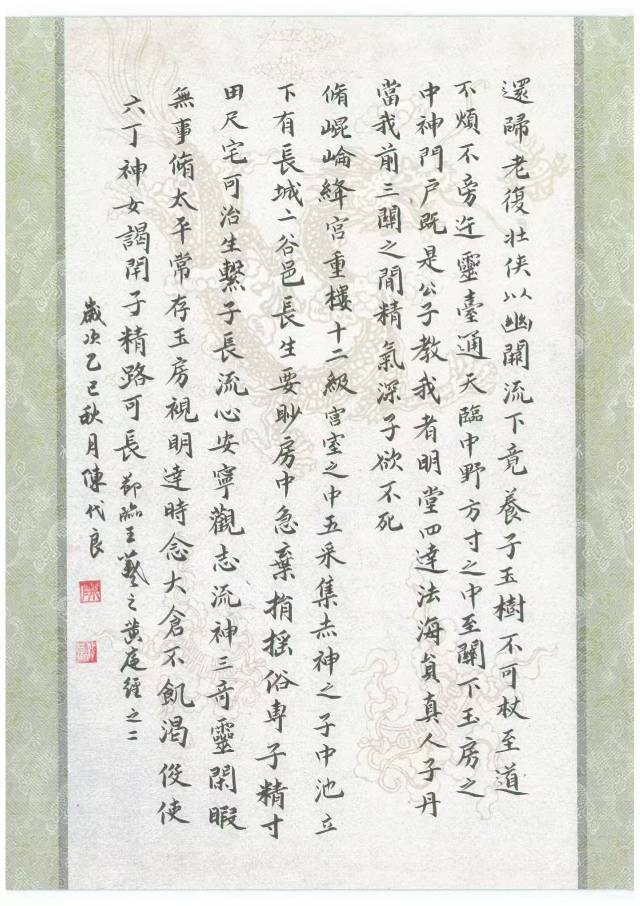 還歸老復壯俠以幽關流下竟養子玉樹不可杖至道
不煩不旁迕靈臺通天臨中野方寸之中至關下玉房之
中神門戶既是公子教我者明堂四達法海員真人子丹
當我前三關之間精氣深子欲不死
脩崐崘絳宮重樓十二級宮室之中五采集赤神之子中池立
下有長城一谷邑長生要眇房中急棄捐搖俗專子精寸
田尺宅可治生繫子長流心安寧觀志流神三奇靈閑暇
無事脩太平常存玉房視明達時念大倉不飢渴役使
六丁神女謁閇子精路可長節臨王羲之黄庭經之二
歲次乙巳秋月陳代良